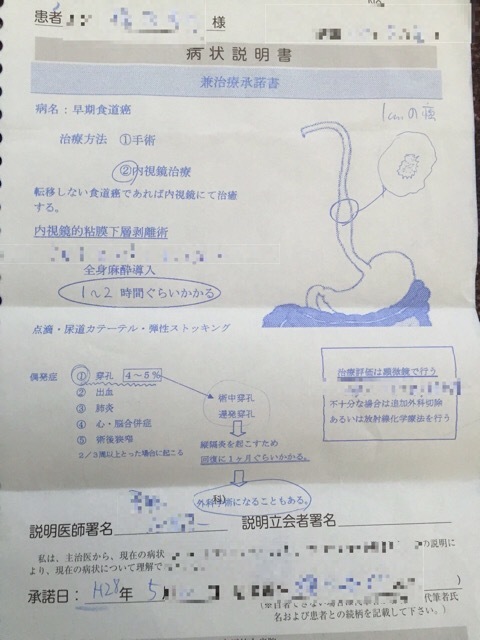 患者
様
病状説明書
兼治療承諾書
病名：早期食道癌
1cmの癌
治療方法 ①手術
②内視鏡治療
転移しない食道癌であれば内視鏡にて治癒
する。
内視鏡的粘膜下層剥離術
全身麻酔導入
1～2 時間ぐらいかかる
点滴・尿道カテーテル・弾性ストッキング
偶発症 ① 穿孔 4～5%
② 出血
③ 肺炎
④ 心・脳合併症
⑤ 術後狭窄
2/3周以上とった場合に起こる
術中穿孔
遅発穿孔
縦隔炎を起こすため
回復に1ヶ月ぐらいかかる。
外科手術になることもある。
治療評価は顕微鏡で行う
不十分な場合は追加外科切除
あるいは放射線化学療法を行う
説明医師署名
説明立会者署名
私は、主治医から、現在の病状
の説明に
より、現在の病状について理解で
承諾日：H28年 5
代筆者氏
名および患者との続柄を記載して下さい。）